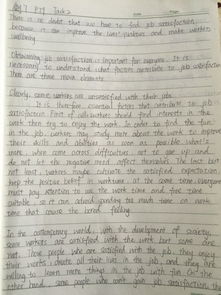 There is no doubt that we have to find job satisfaction,
because it can improve the workers and make workers
Obtaining job satisfaction is important for everyone. It is
necessary to understand what factors contribute to job satisfaction
There are three main elements
Clearly, some workers are unsatisfied with their jobs.
It is therefore essential factors that contribute to job
satisfaction. First of all, workers should find interests in the
work then try to enjoy the work. In order to find the fun
in the job, workers may study more about the work to improve
their skills and abilities as soon as possible. What is
more, when come across difficulties, not to give up and
do not let the negative mood affect themselves. The last but
not least, workers maybe cultivate the satisfied expectation
keep the positive belief in worktime, at the same time, everyone
must pay attention to use the work time and free time
suitable, so it can avoid spending too much time on work
time that cause the tired feeling.
In the contemporary world, with the development of society,
some workers are satisfied with the work but some are
not. Those people who are satisfied with the job, they enjoy
their works, devote all their lives in the job and they are
willing to learn more things in the job with fun. On the
other hand, some people who can't gain job satisfaction